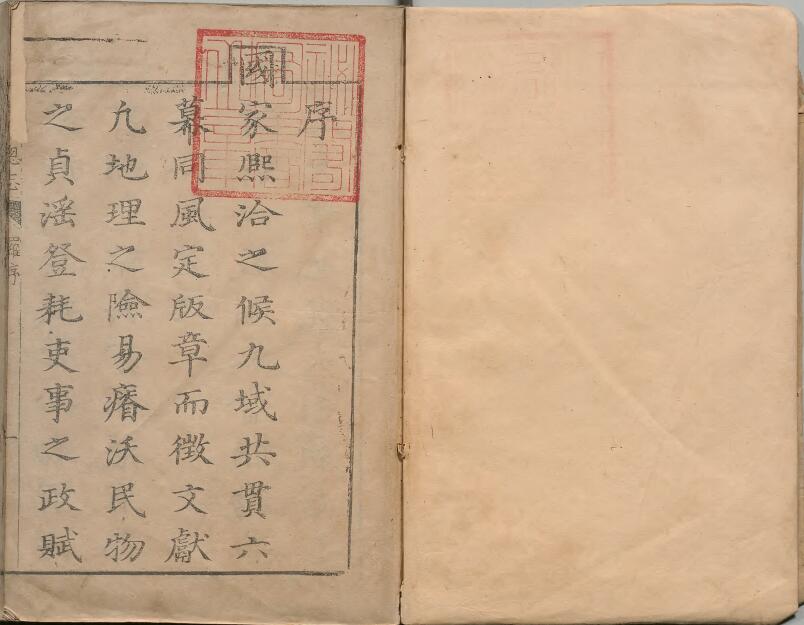 序
國家熈洽之候九域共貫六
幕同風定版章而徵文獻
凡地理之險易瘠沃民物
之貞滛登耗吏事之政賦